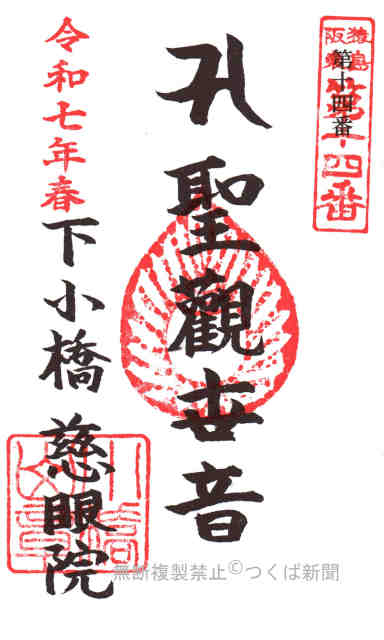 猿島
阪東
第十四番
第十四番
聖觀世音
令和七年春
下小橋 慈眼院
無断複製禁止©つくば新聞